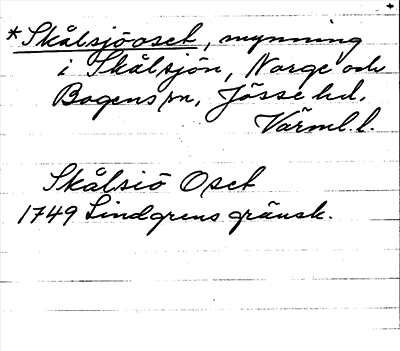 *Skålsjöoset, mynning
i Skålsjön, Norge och
Bogens sn, Jösse hd,
Värml. l.
Skålsiö Oset
1749 Lindgrens gränsk.